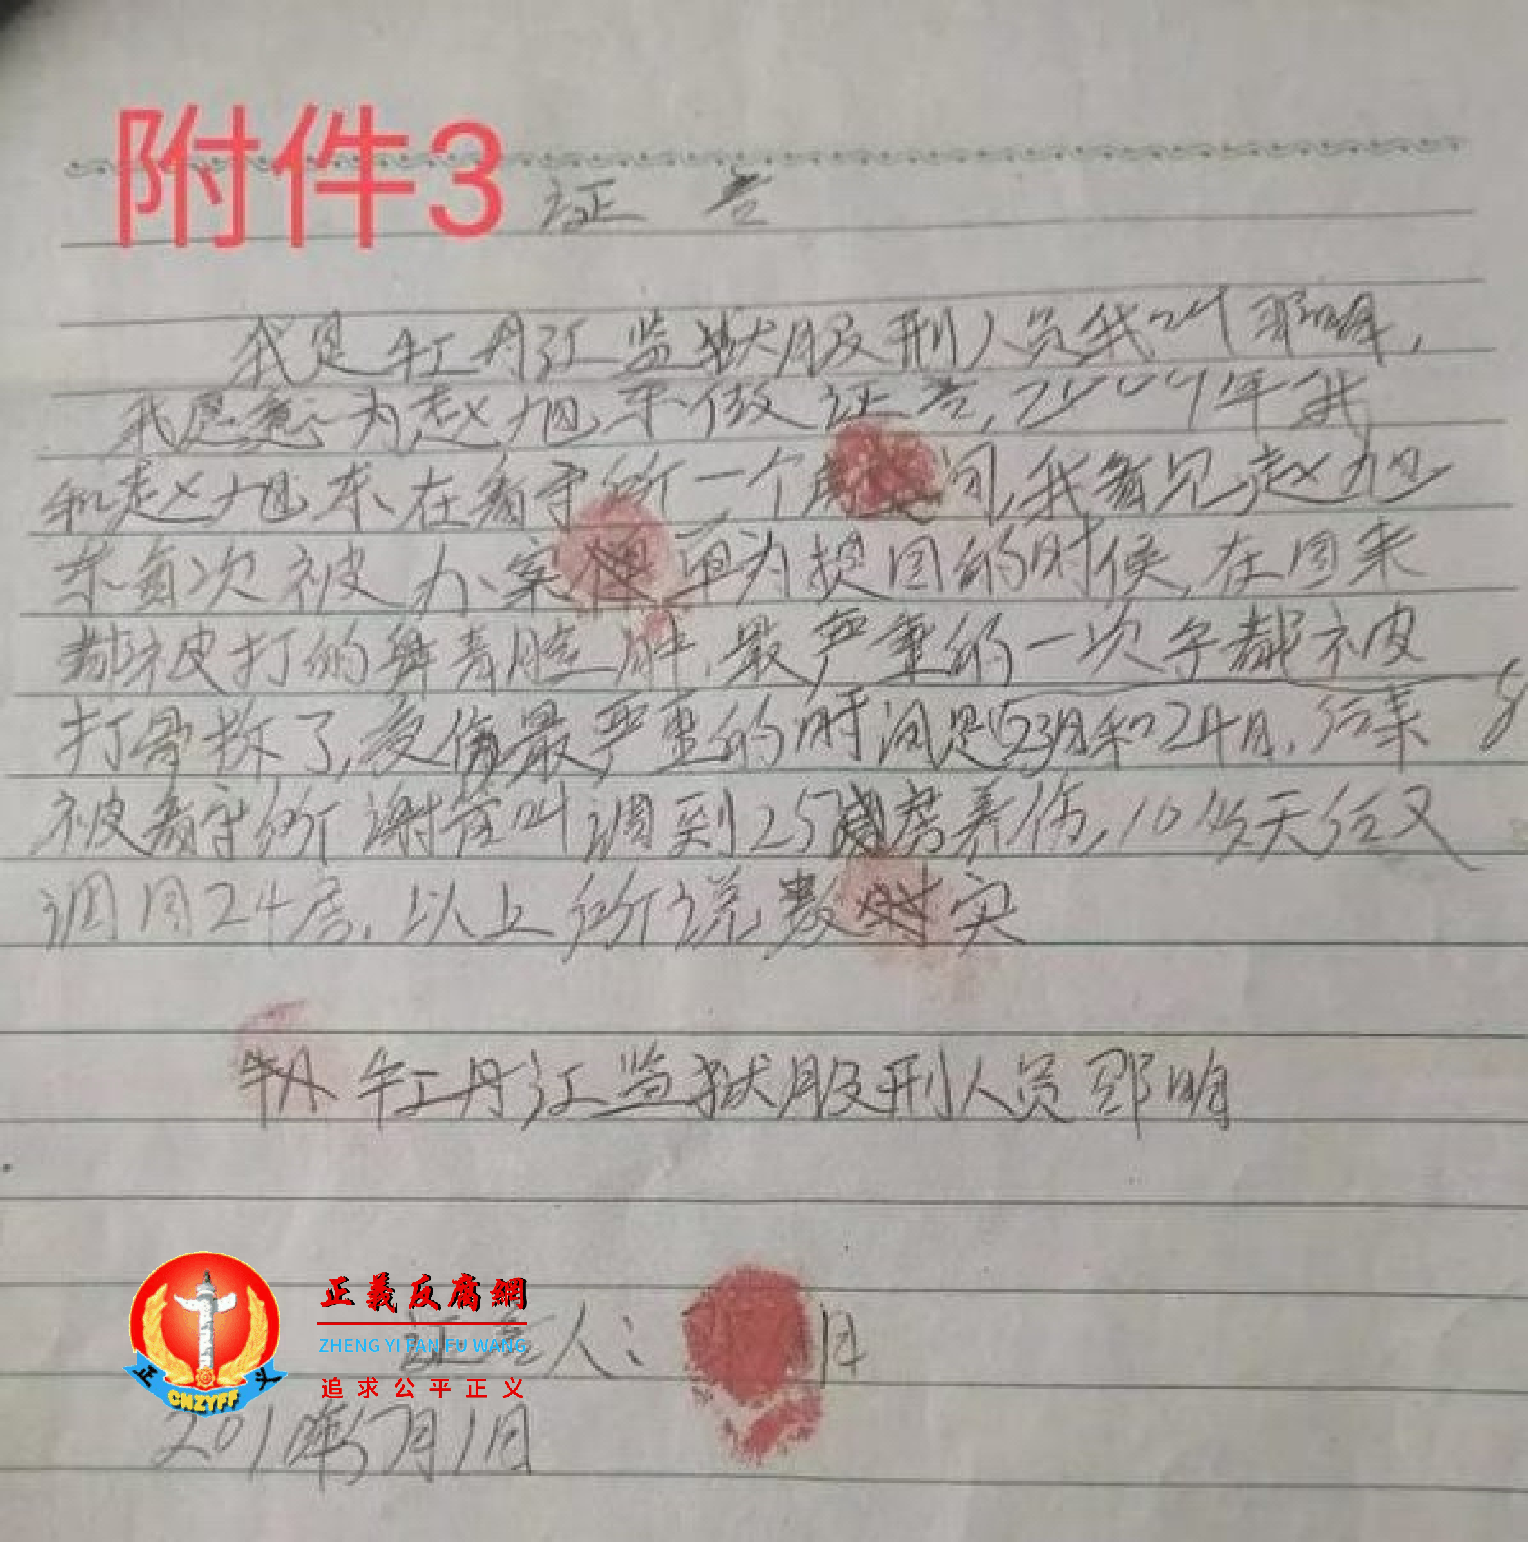 附件3
证 言
我是牡丹江监狱服刑人员我叫邓明,
我愿意为赵旭东做证言,2009年我
和赵旭东在看守所一个 间,我看见赵旭
东每次被办案 单为提回的时候,在回来
都被打的鼻青脸肿,最严重的一次牙都被
打骨折了,受伤最严重的时间是 23月和24月,后来
被看守所谢管叫调到25 房养伤,10多天后又
调回24房,以上所说数 实
牡丹江监狱服刑人员邓明
正義反腐網
ZHENG YI FAN FU WANG
证言人: 明
追求公平正义
正 义
CNZYFF
201 年 7月1日